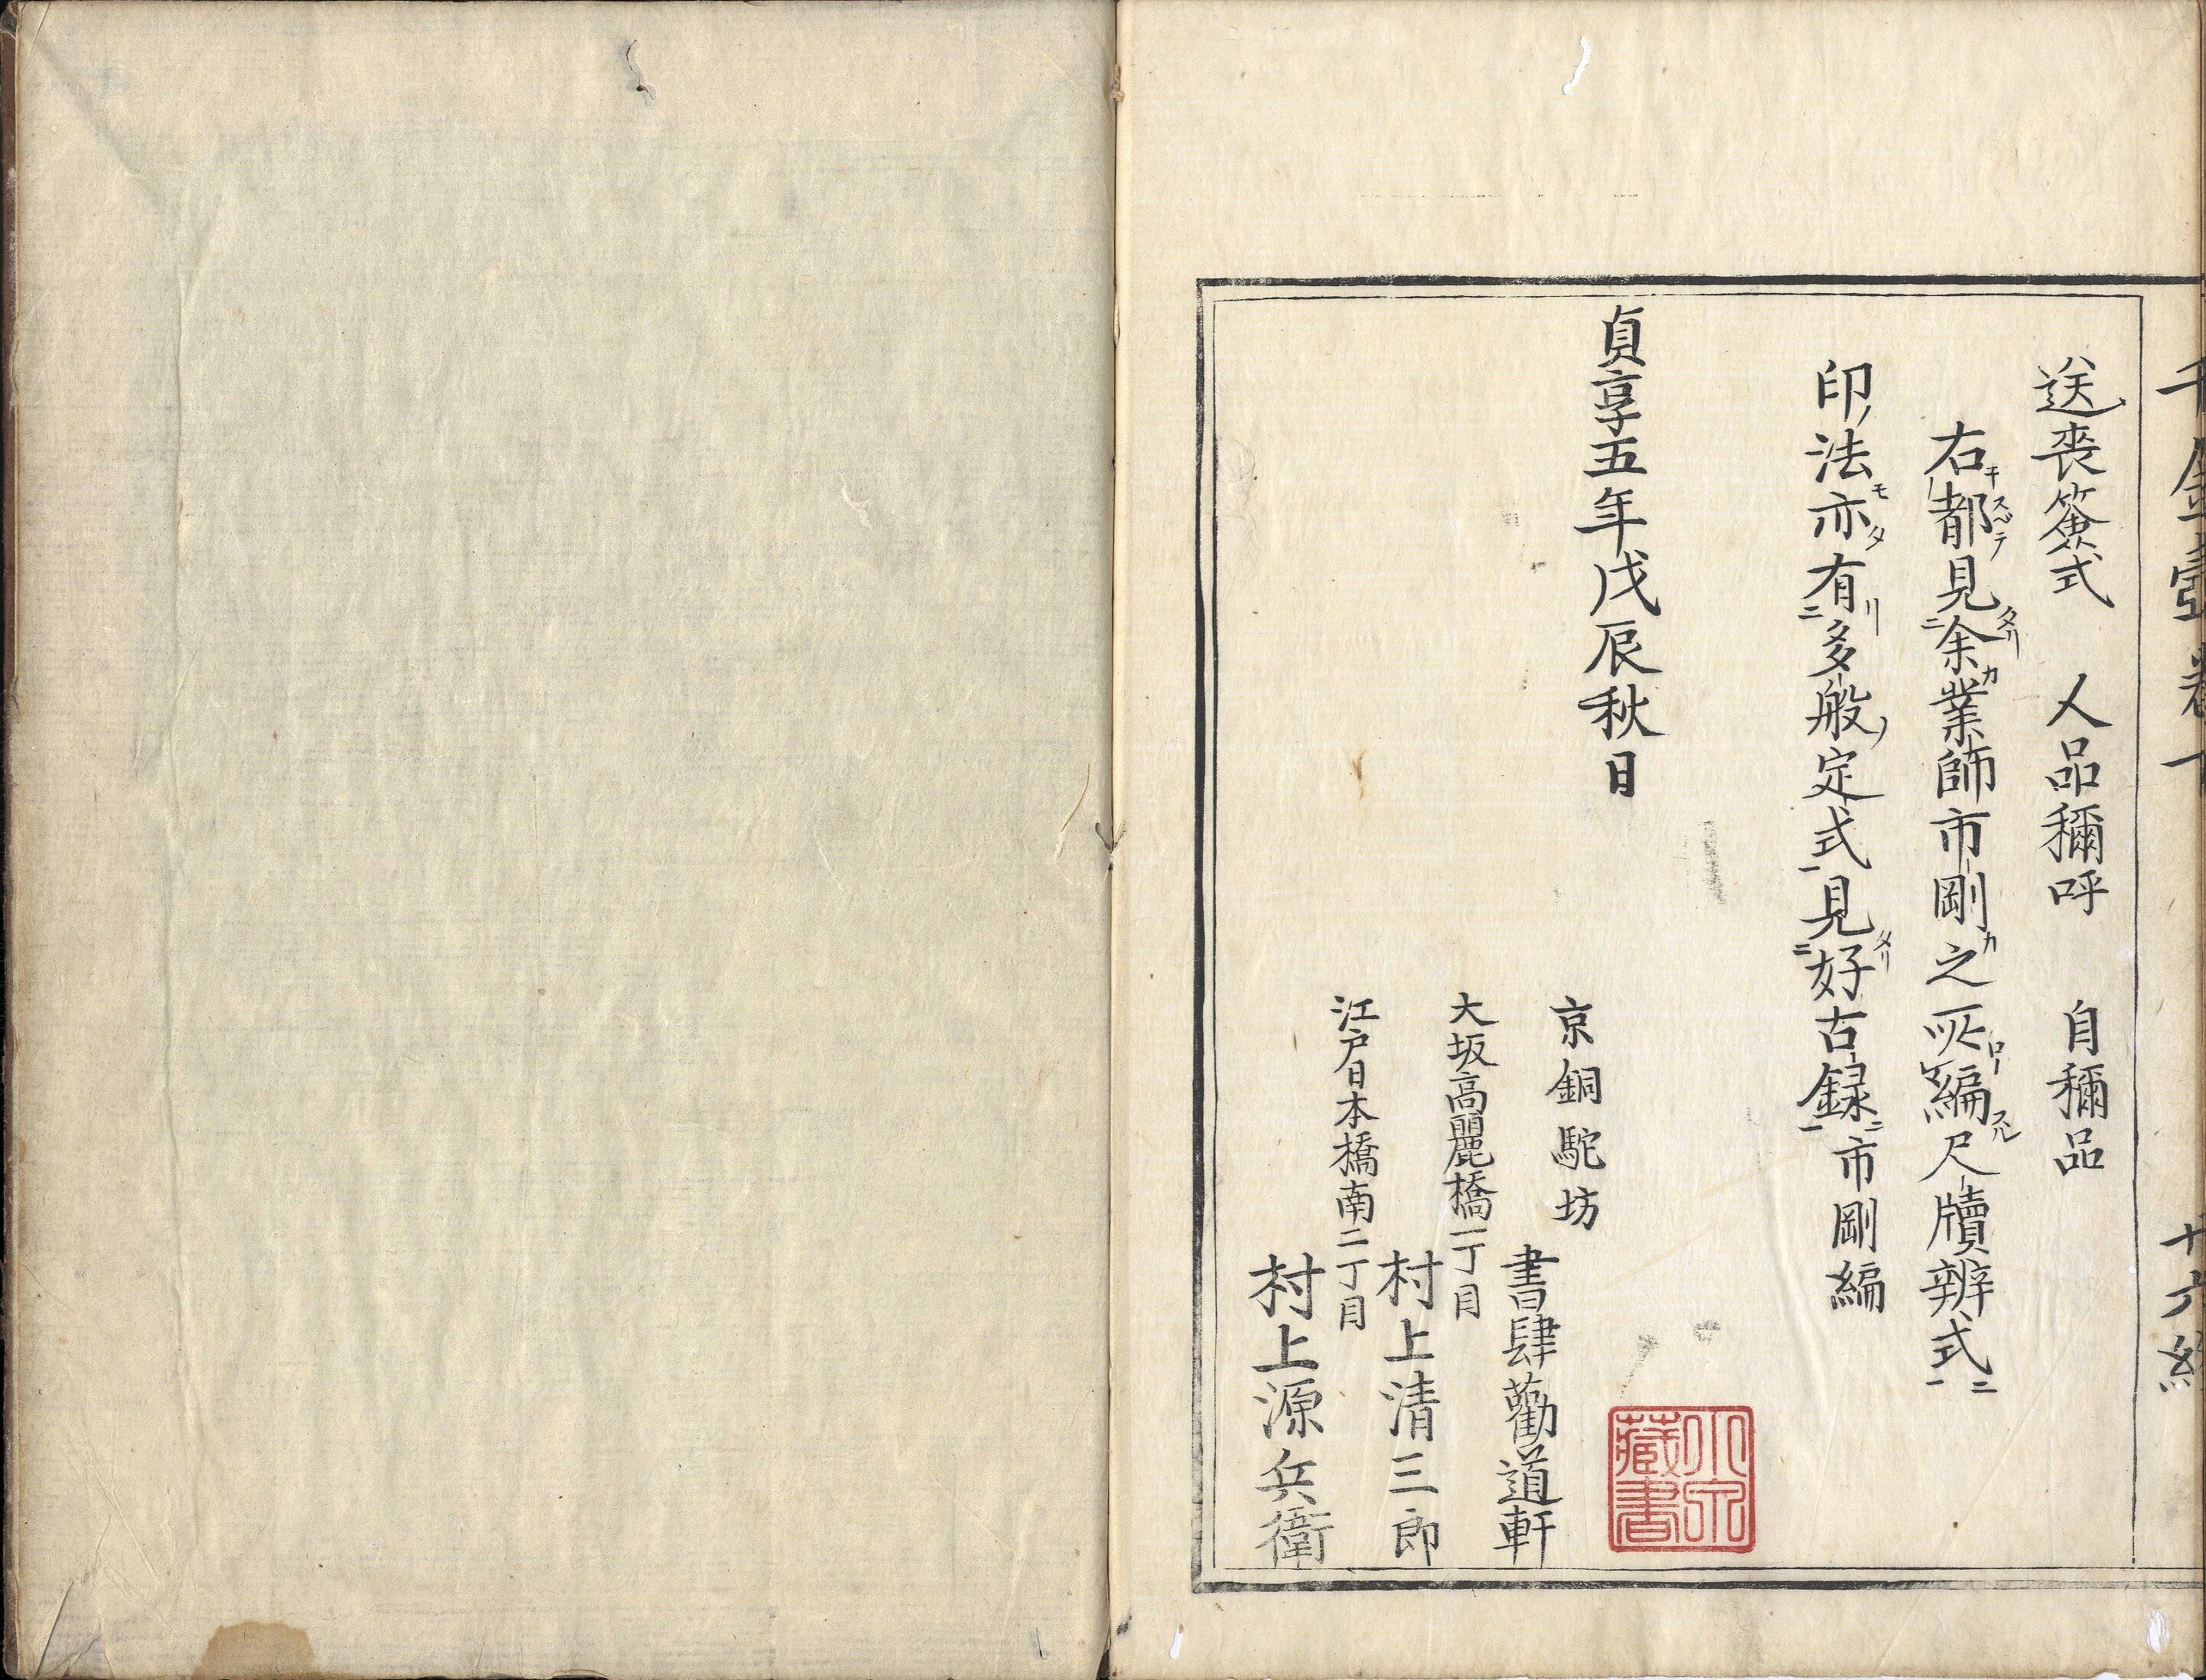 送喪簽式　人品稱呼　自稱品
右都見余業師市剛之所編尺牘辨式
印法亦有多般定式見好古録市剛編
貞享五年戊辰秋日
京銅駝坊
書肆勸道軒
大坂高麗橋一丁目
村上清三郎
江戸日本橋南二丁目
村上源兵衛
藏書